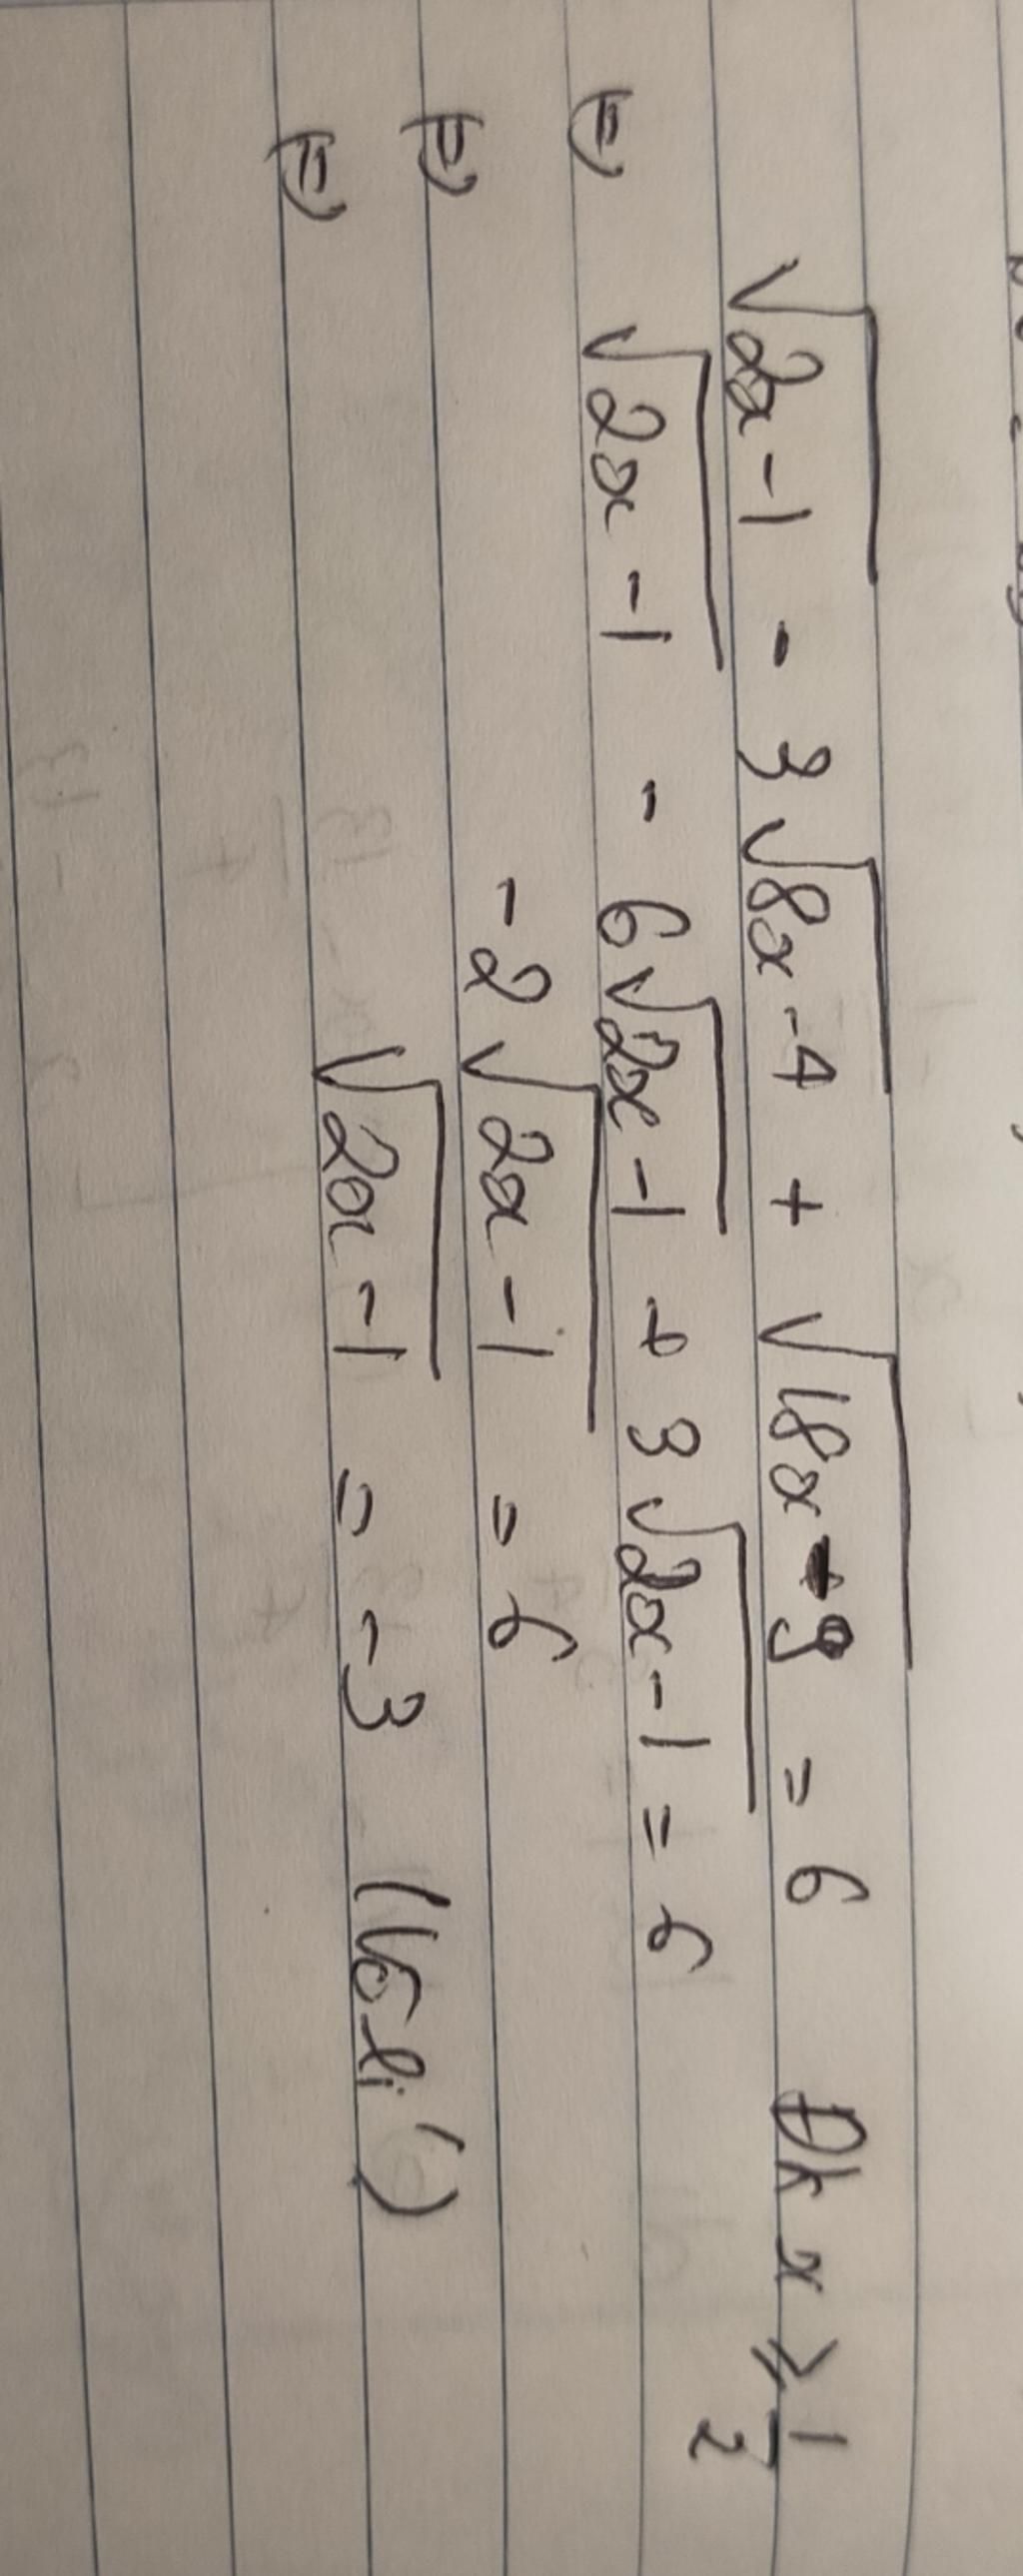 √(2x-1) - 3√(8x-4) + √(18x-9) = 6 Đk x ⩾ 1/2
⇔ √(2x-1) - 6√(2x-1) + 3√(2x-1) = 6
⇔ -2√(2x-1) = 6
⇔ √(2x-1) = -3 (Vô lí)